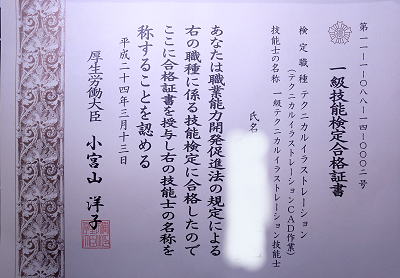 第一一-一-〇八八-一四-〇〇〇二号
一級技能検定合格証書
検定職種 テクニカルイラストレーション
(テクニカルイラストレーションCAD作業)
技能士の名称 一級テクニカルイラストレーション技能士
氏名
あなたは職業能力開発促進法の規定による
右の職種に係る技能検定に合格したので
ここに合格証書を授与し右の技能士の名称を
称することを認める
平成二十四年三月十三日
厚生労働大臣 小宮山 洋子